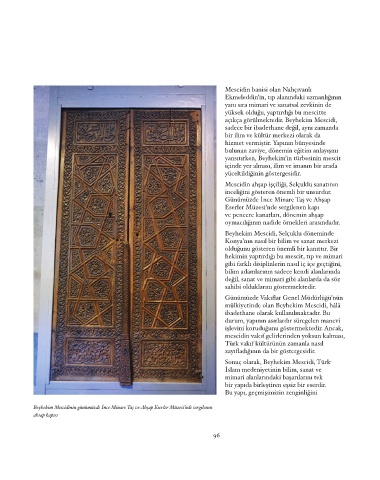 Mescidin banisi olan Nahçıvanlı
Ekmeleddin'in, tıp alanındaki uzmanlığının
yanı sıra mimari ve sanatsal zevkinin de
yüksek olduğu, yaptırdığı bu mescitte
açıkça görülmektedir. Beyhekim Mescidi,
sadece bir ibadethane değil, aynı zamanda
bir ilim ve kültür merkezi olarak da
hizmet vermiştir. Yapının bünyesinde
bulunan zaviye, dönemin eğitim anlayışını
yansıtırken, Beyhekim'in türbesinin mescit
içinde yer alması, ilim ve imanın bir arada
yüceltildiğinin göstergesidir.
Mescidin ahşap işçiliği, Selçuklu sanatının
inceliğini gösteren önemli bir unsurdur.
Günümüzde İnce Minare Taş ve Ahşap
Eserler Müzesi'nde sergilenen kapı
ve pencere kanatları, dönemin ahşap
oymacılığının nadide örnekleri arasındadır.
Beyhekim Mescidi, Selçuklu döneminde
Konya'nın nasıl bir bilim ve sanat merkezi
olduğunu gösteren önemli bir kanıttır. Bir
hekimin yaptırdığı bu mescit, tıp ve mimari
gibi farklı disiplinlerin nasıl iç içe geçtiğini,
bilim adamlarının sadece kendi alanlarında
değil, sanat ve mimari gibi alanlarda da söz
sahibi olduklarını göstermektedir.
Günümüzde Vakıflar Genel Müdürlüğü'nün
mülkiyetinde olan Beyhekim Mescidi, hâlâ
ibadethane olarak kullanılmaktadır. Bu
durum, yapının asırlardır süregelen manevi
işlevini koruduğunu göstermektedir. Ancak,
mescidin vakıf gelirlerinden yoksun kalması,
Türk vakıf kültürünün zamanla nasıl
zayıfladığının da bir göstergesidir.
Sonuç olarak, Beyhekim Mescidi, Türk-
İslam medeniyetinin bilim, sanat ve
mimari alanlarındaki başarılarını tek
bir yapıda birleştiren eşsiz bir eserdir.
Bu yapı, geçmişimizin zenginliğini
Beyhekim Mescidinin günümüzde İnce Minare Taş ve Ahşap Eserler Müzesi'nde sergilenen
ahşap kapısı
96